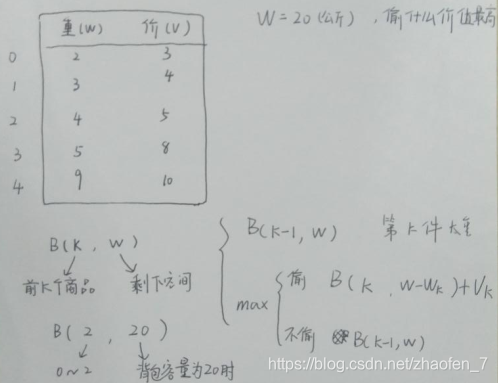 重(W) 价(V)
W=20(公斤),偷什么价值最高
0 2 3
1 3 4
2 4 5
3 5 8
4 9 10
B(K, W)
前K个商品 剩下空间
B(2, 20)
0~2 背包容量为20时
B(K-1, W) 第K件太重
max
偷 B(K, W-Wk)+Vk
不偷 B(K-1, W)
https://blog.csdn.net/zhaofen_7